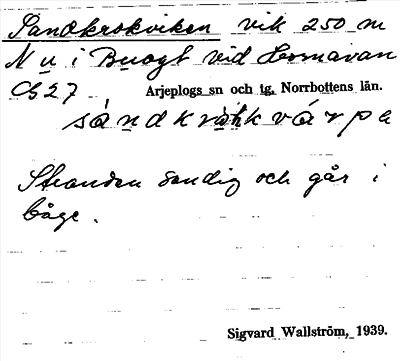 Sandkrokviken vik 250 m
N u i Buogt vid Hornavan
CB27 Arjeplogs sn och tg. Norrbottens län.
sándkråkkvárpe
Stranden sandig och går i
båge.
Sigvard Wallström, 1939.